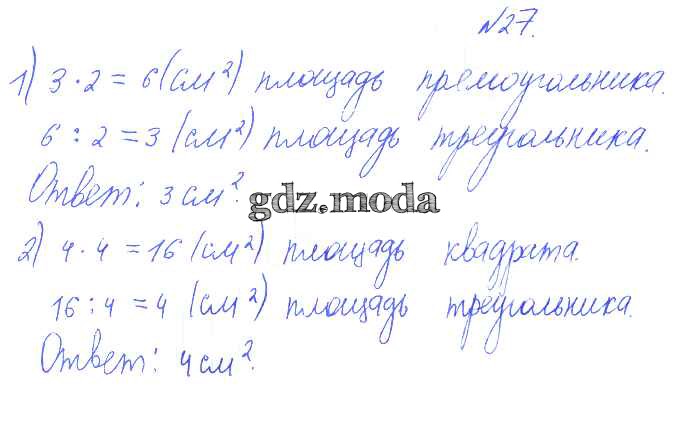 №27.
1) 3 · 2 = 6 (см²) площадь прямоугольника.
6 : 2 = 3 (см²) площадь треугольника.
Ответ: 3 см².
gdz.moda
2) 4 · 4 = 16 (см²) площадь квадрата.
16 : 4 = 4 (см²) площадь треугольника.
Ответ: 4 см².